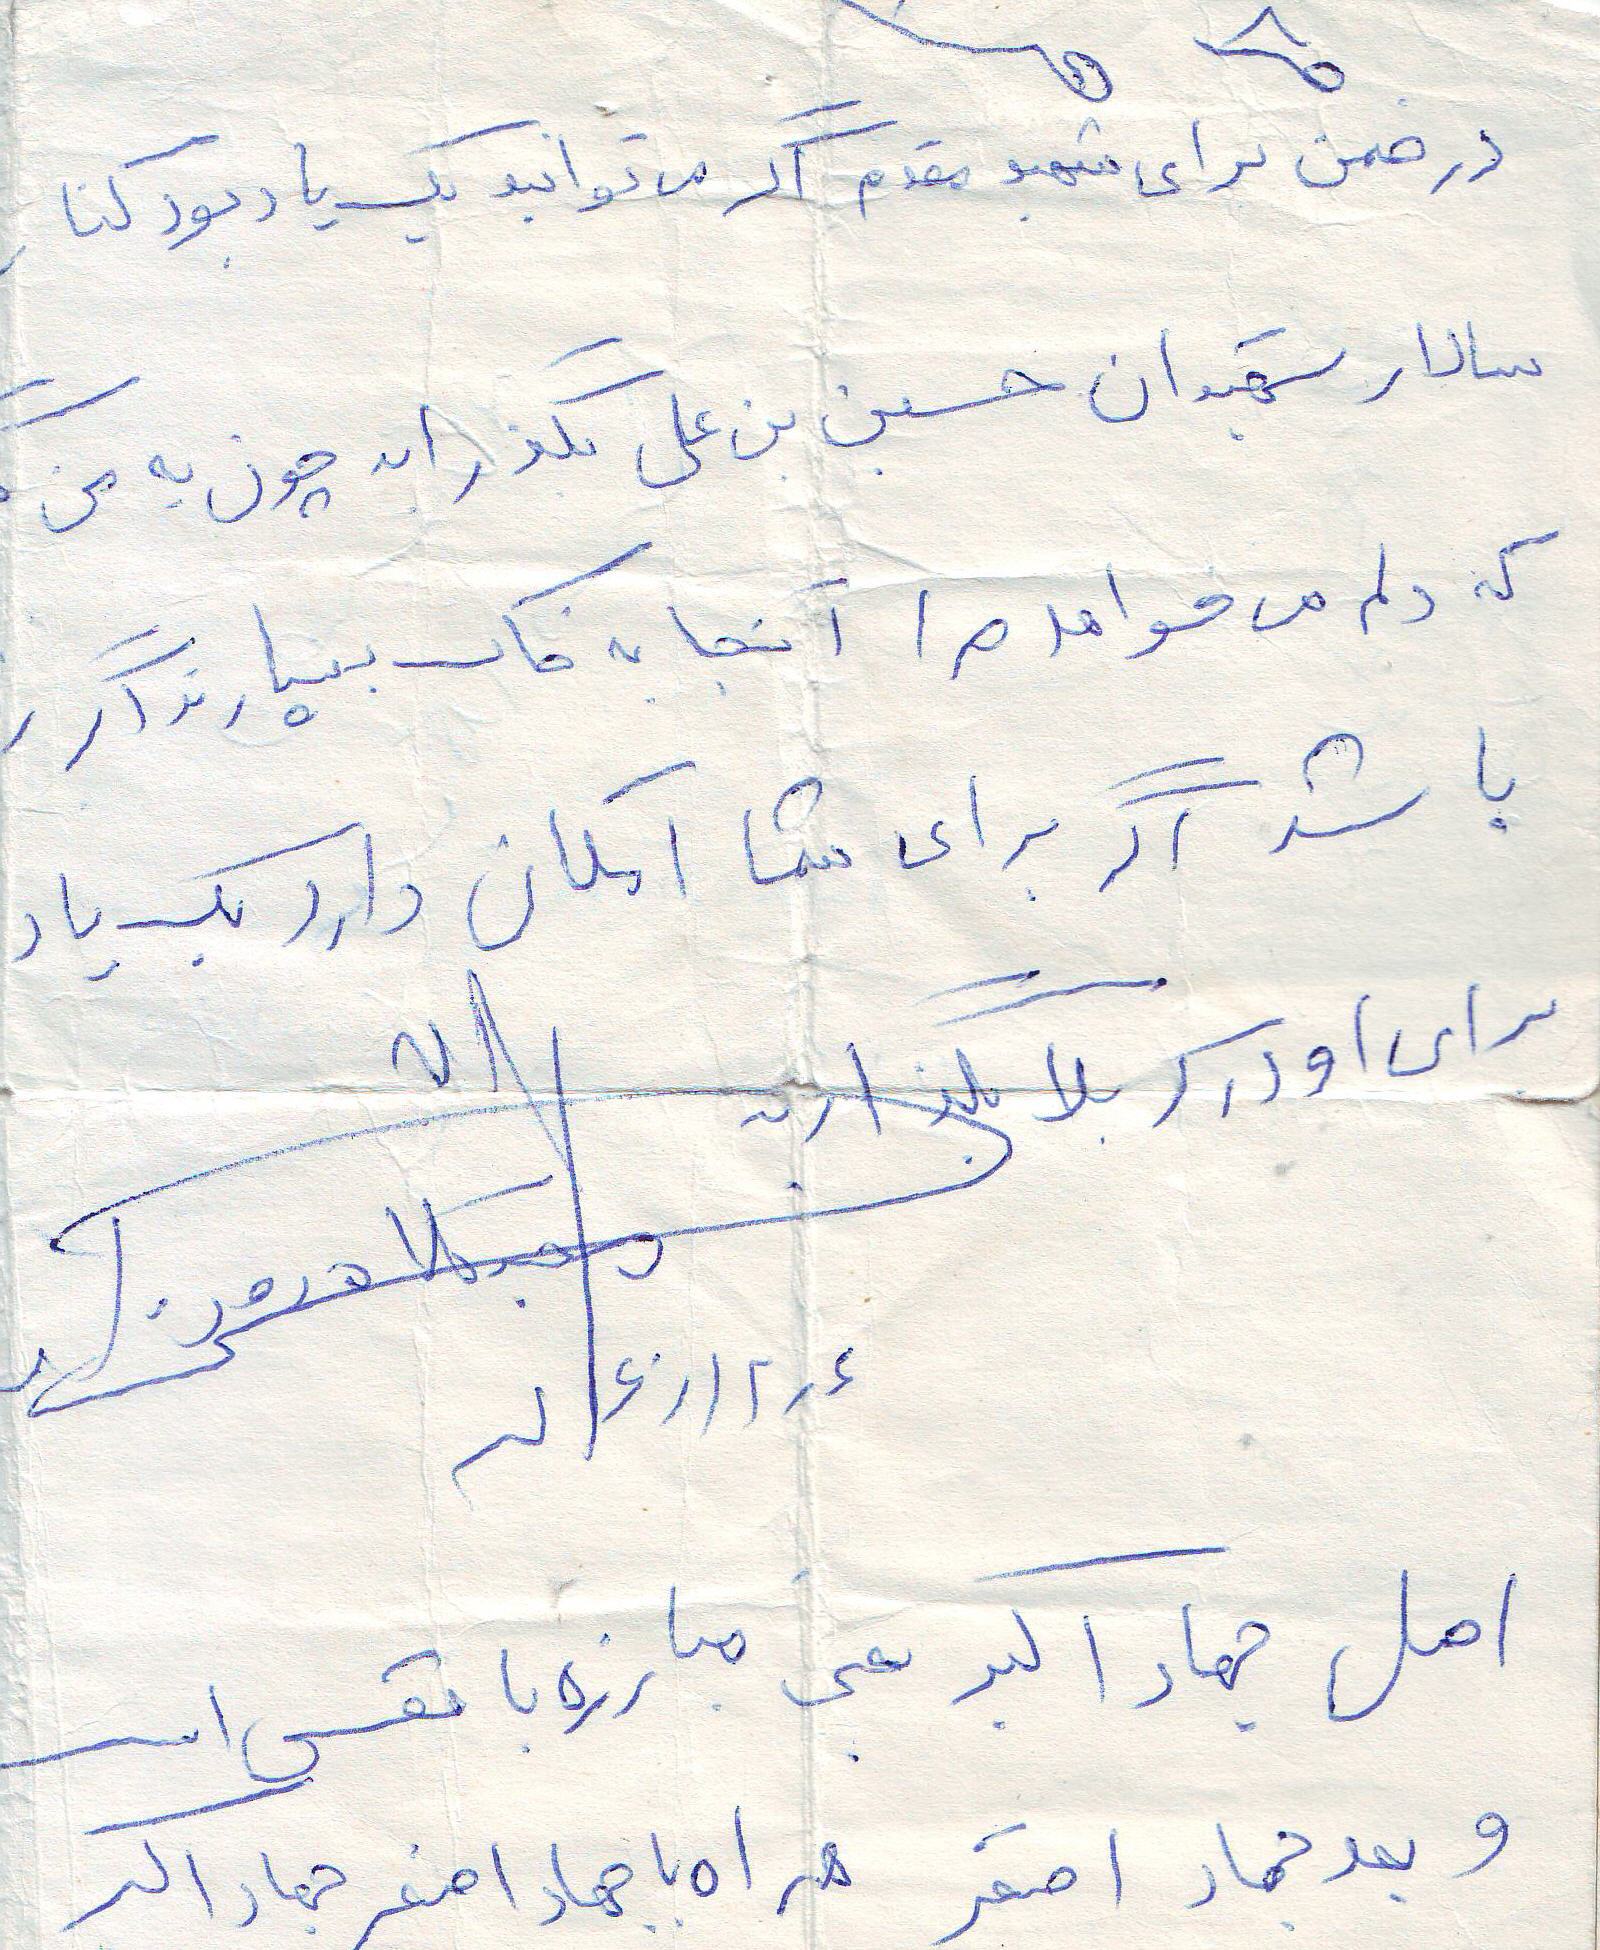 در ضمن برای شهید مقدم اگر می توانید یک یاد بود کنار
سالار شهیدان حسین بن علی بگذارید چون به من
که دلم می خواهد مرا آنجا به خاک بسپارند اگر
با شد اگر برای شما امکان دارد یک یاد
برای او در کربلا بگذارید
والا
۴ر۱۲ر۶۰
اصل جهاد اکبر یعنی مبارزه با نفس است
و بعد جهاد اصغر همراه با جهاد اصغر جهاد اکبر